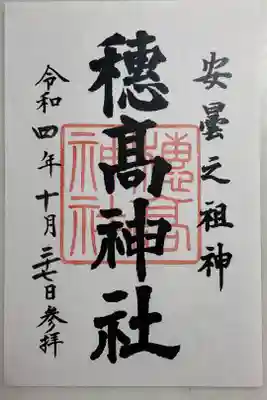 安曇之祖神
穂髙神社
穗高神社
令和四年十月二十七日参拝